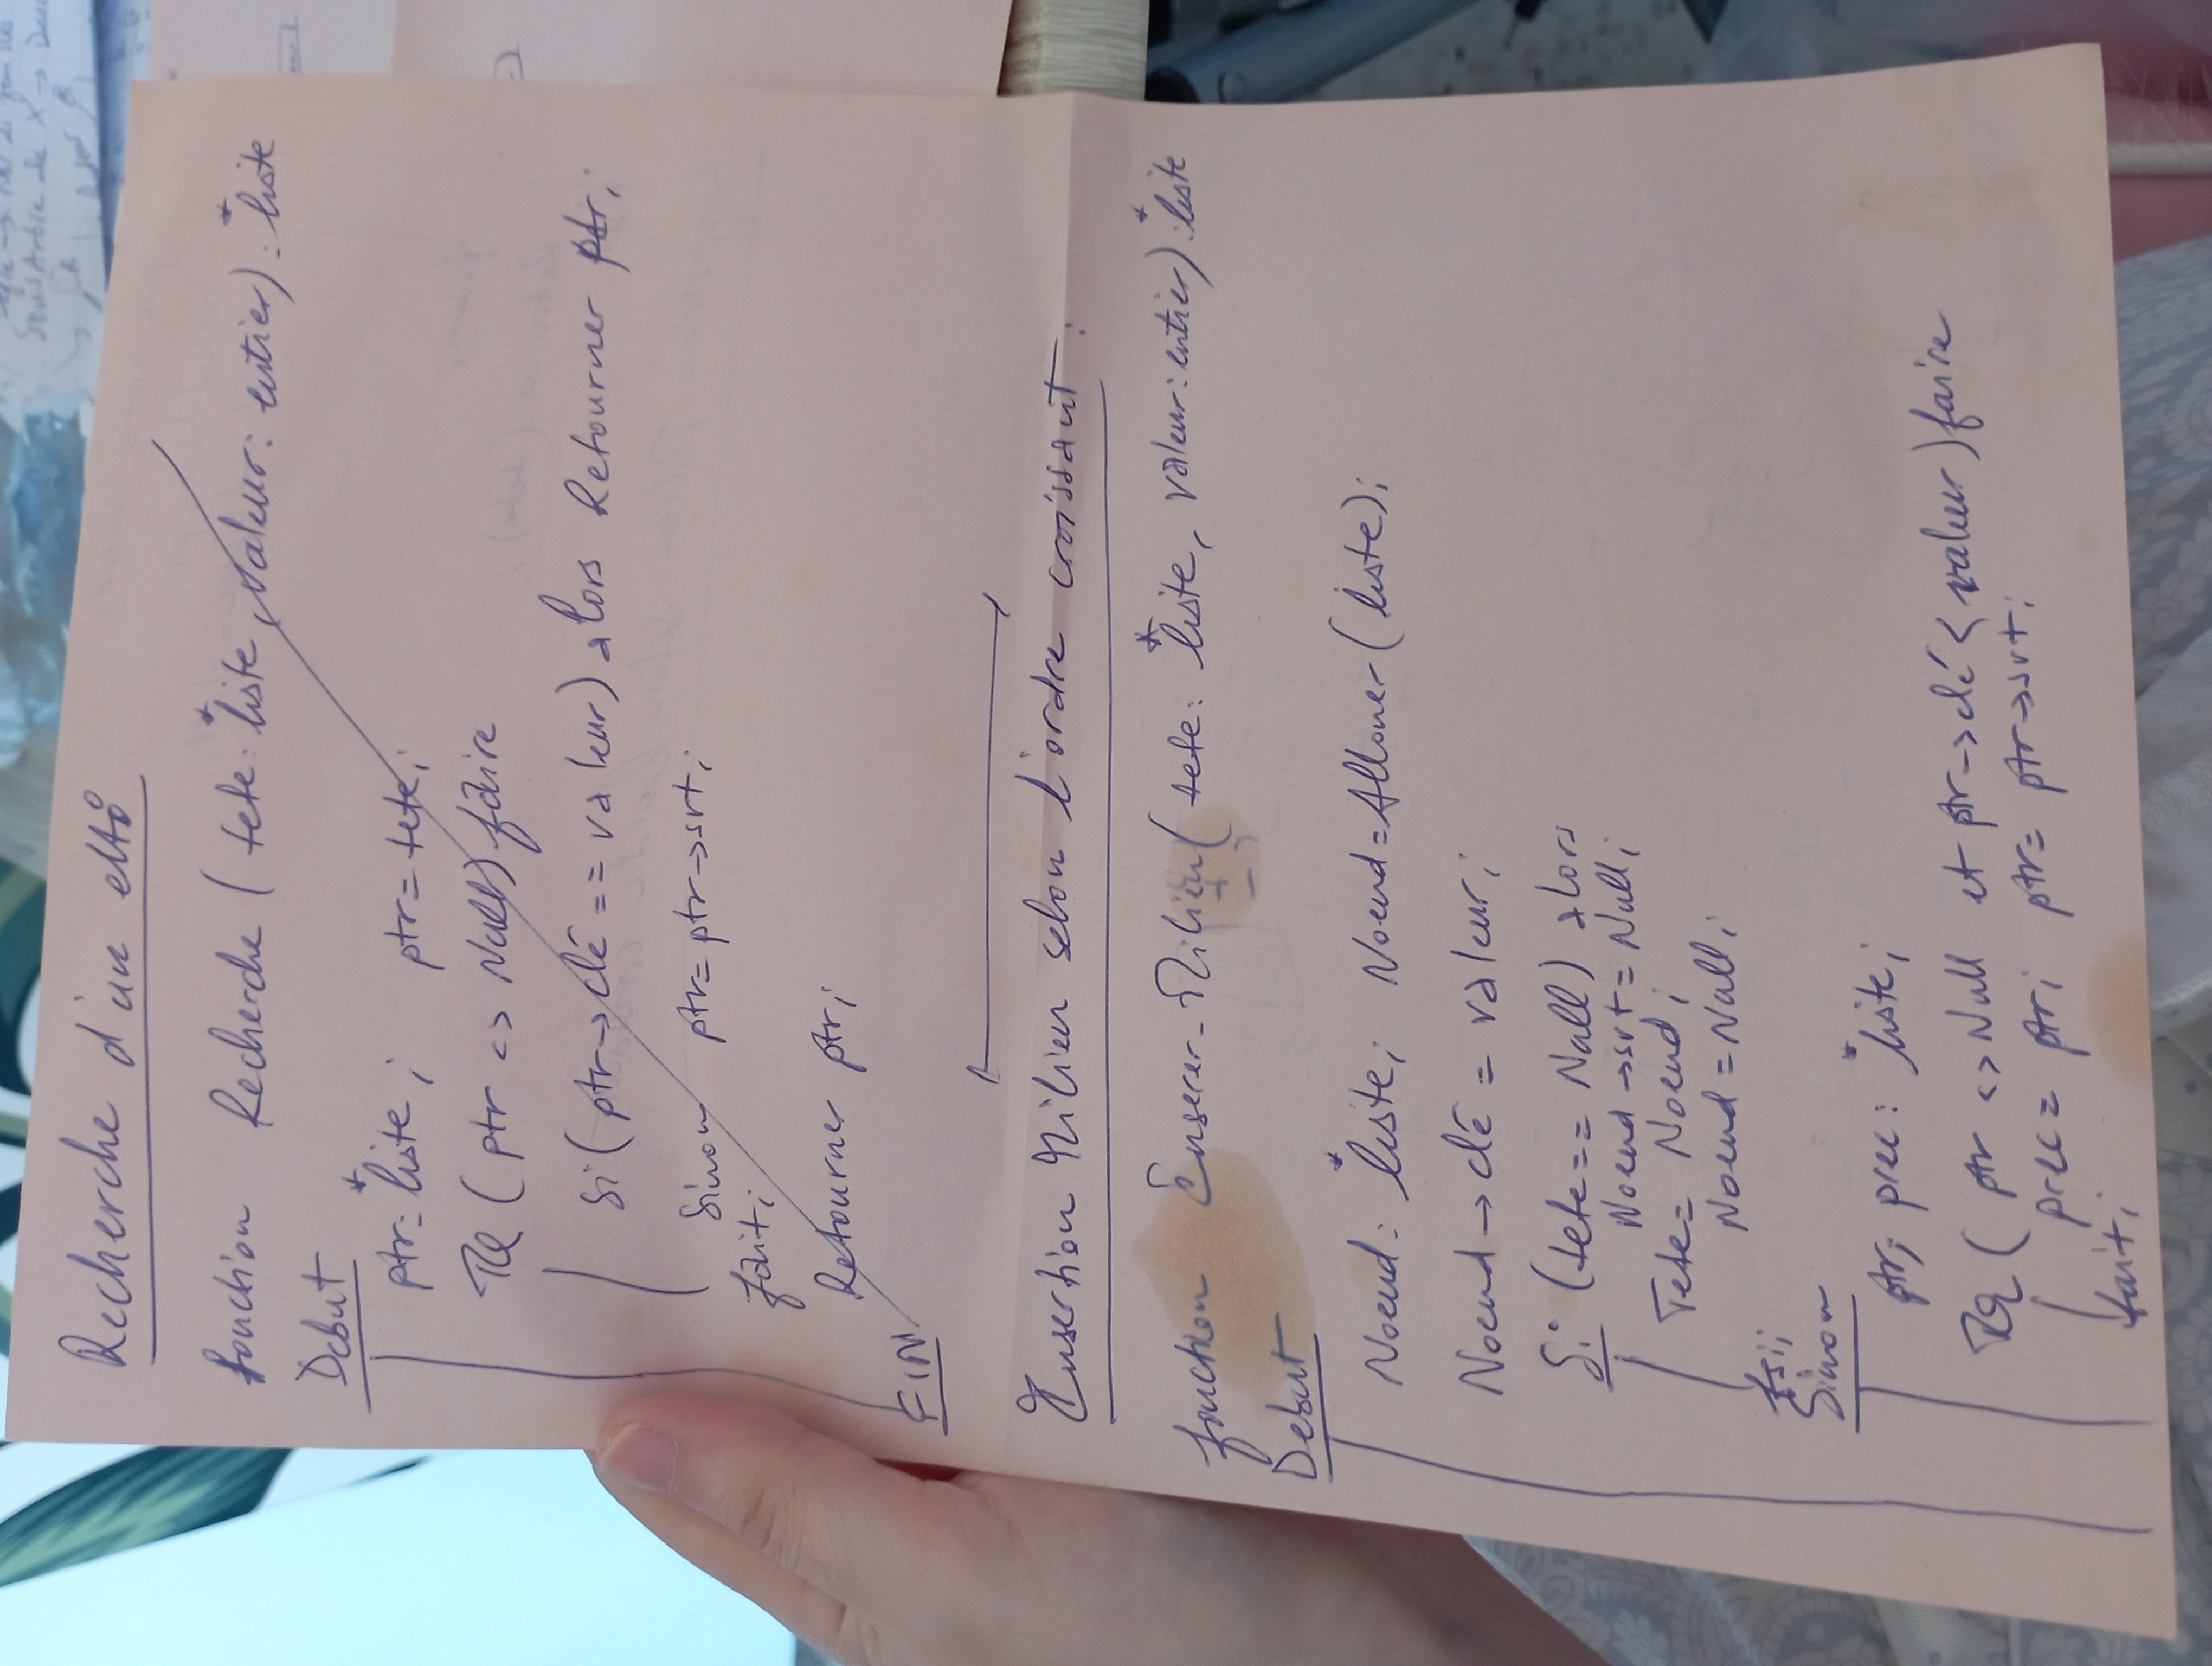 Recherche d'un elt
fonction Recherche ( tete: *liste, valeur: entier) : *liste
Debut
ptr: *liste ; ptr = tete;
TQ ( ptr <> Null) faire
Si ( ptr → clé == valeur) alors Retourner ptr;
Sinon ptr = ptr → svt;
fait;
Retourner ptr;
FIN
Insertion Milieu selon l'ordre croissant :
fonction Inserer-Milieu ( tete: *liste, valeur: entier) : *liste
Debut
Noeud: *liste; Noeud = Allouer (liste);
Noeud → clé = valeur;
Si (tete == Null) alors
Noeud → svt = Null;
Tete = Noeud;
Noeud = Null;
fsi;
Sinon
ptr, prec: *liste;
TQ ( ptr <> Null et ptr → clé < valeur) faire
prec = ptr; ptr = ptr → svt;
fait;
Sous Arbre de X →